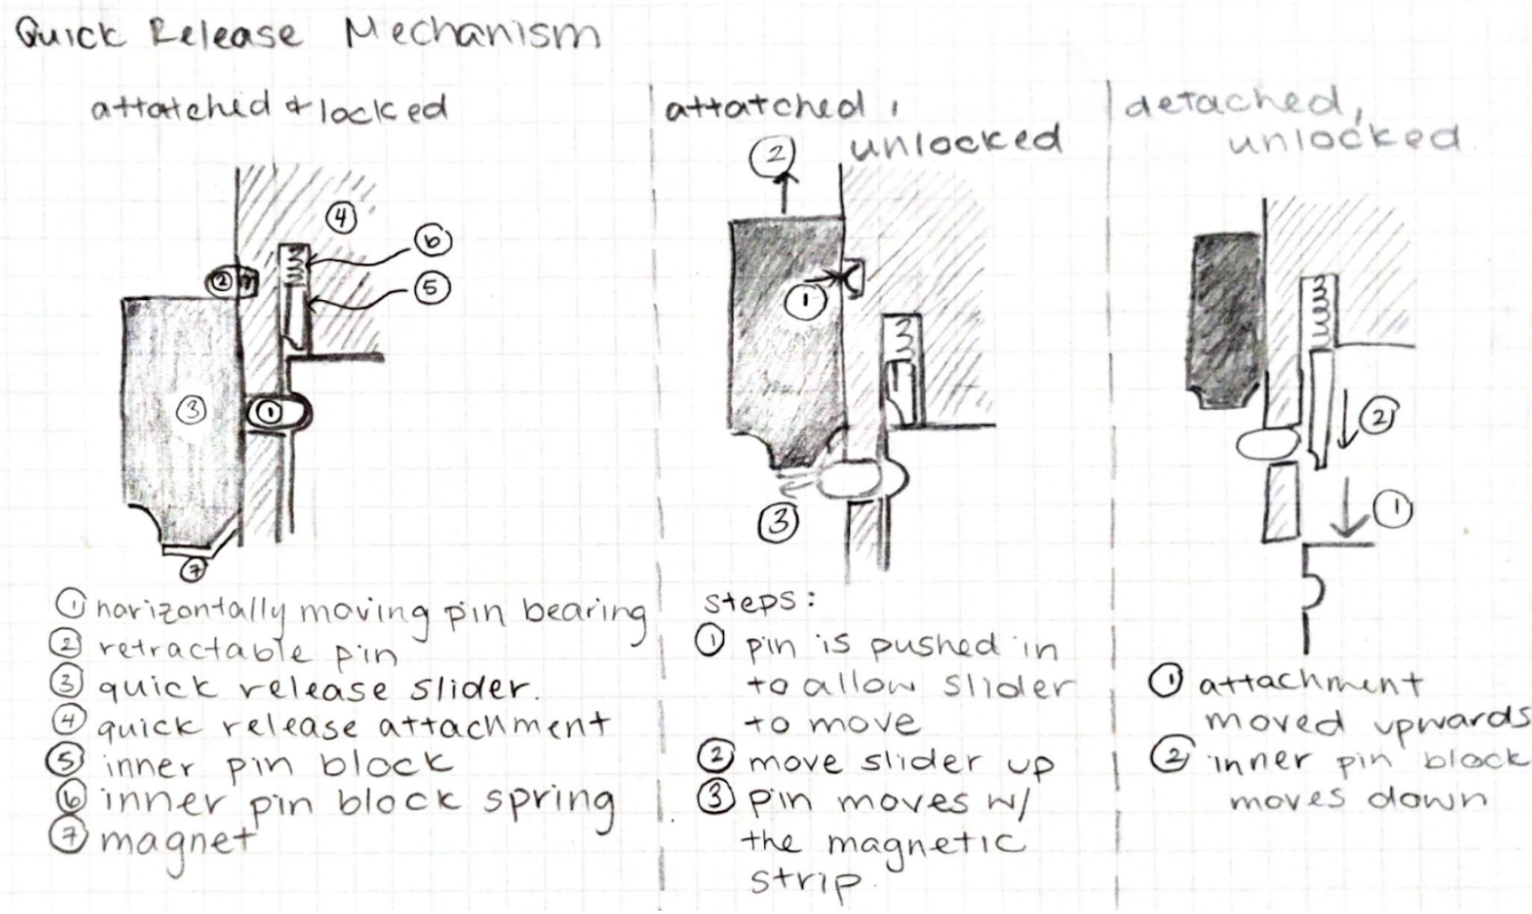 Quick Release Mechanism
attatched & locked
④
⑥
②
⑤
③
①
⑦
① horizontally moving pin bearing
② retractable pin
③ quick release slider.
④ quick release attachment
⑤ inner pin block
⑥ inner pin block spring
⑦ magnet
attatched,
unlocked
②
①
③
steps:
① pin is pushed in
to allow slider
to move
② move slider up
③ pin moves w/
the magnetic
strip.
detached,
unlocked
②
①
① attachment
moved upwards
② inner pin block
moves down